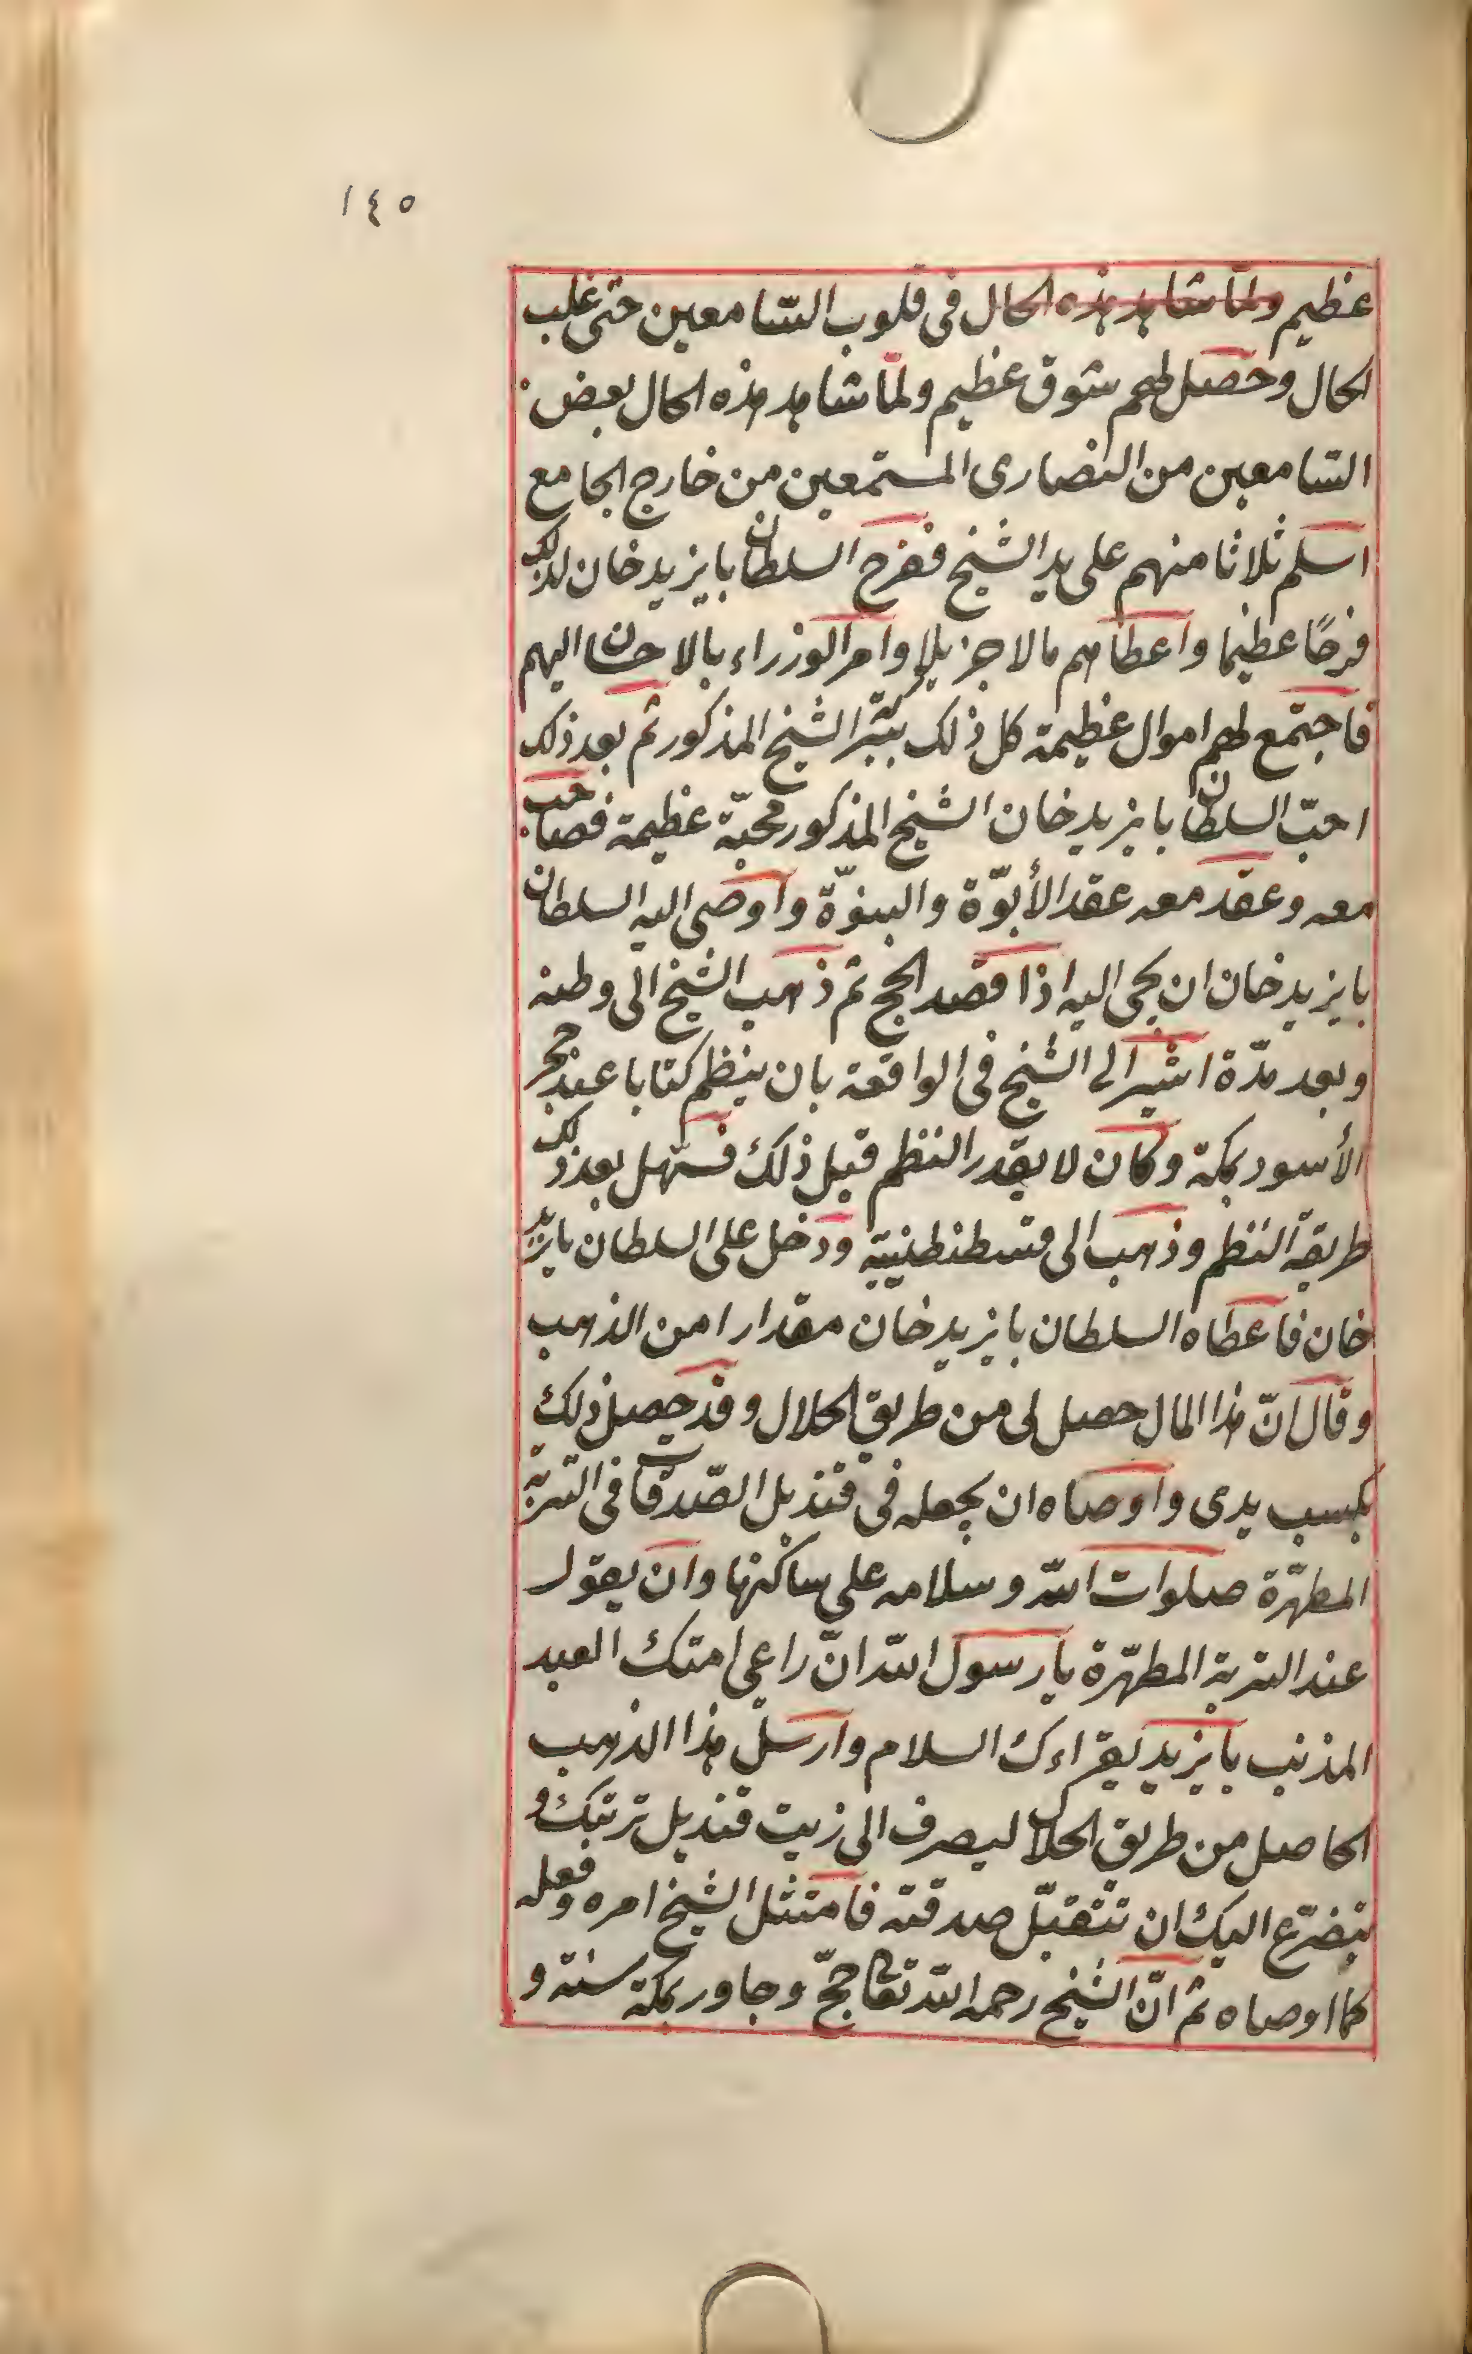 ١٤٥
عظيم ولمّا شاهد هذه الحال فى قلوب السّامعين حتى غلب
الحال وحصل لهم شوق عظيم ولمّا شاهد هذه الحال بعض
السّامعين من النصارى المستمعين من خارج الجامع
اسلم ثلاثا منهم على يد الشيخ ففرح السلطان بايزيد خان لذلك
فرحًا عظيما واعطاهم مالا جزيلا وامر الوزراء بالاحسان اليهم
فاجتمع لهم اموال عظيمة كل ذلك بتيسّر الشيخ المذكور ثم بعد ذلك
احبّ السلطان بايزيد خان الشيخ المذكور محبّة عظيمة فصاحب
معه وعقد معه عقد الأبوّة والبنوّة واوصى اليه السلطان
بايزيد خان ان يجى اليه اذا قصد الحج ثم ذهب الشيخ الى وطنه
وبعد مدّة اشير الى الشيخ فى الواقعة بان ينظم كتابا عند حجر
الأسود بمكة وكان لا يقدر النظم قبل ذلك فسهل بعد ذلك
طريقة النظم وذهب الى قسطنطنيّة ودخل على السلطان بايزيد
خان فاعطاه السلطان بايزيد خان مقدارا من الذهب
وقال انّ هذا المال حصل لى من طريق الحلال وقد حصل ذلك
بكسب يدى واوصاه ان يجعله فى قنديل الصّدقات فى التربة
المطهّرة صلوات الله وسلامه على ساكنها وان يقول
عند التربة المطهّرة يا رسول الله انّ راعى امتك العبد
المذنب بايزيد يقراءك السلام وارسل هذا الذهب
الحاصل من طريق الحلال ليصرف الى زيت قنديل تربتك و
يتضرّع اليك ان تتقبّل صدقته فامتثل الشيخ امره وفعله
كما اوصاه ثم انّ الشيخ رحمه الله تعالى حجّ وجاور بمكة سنة و